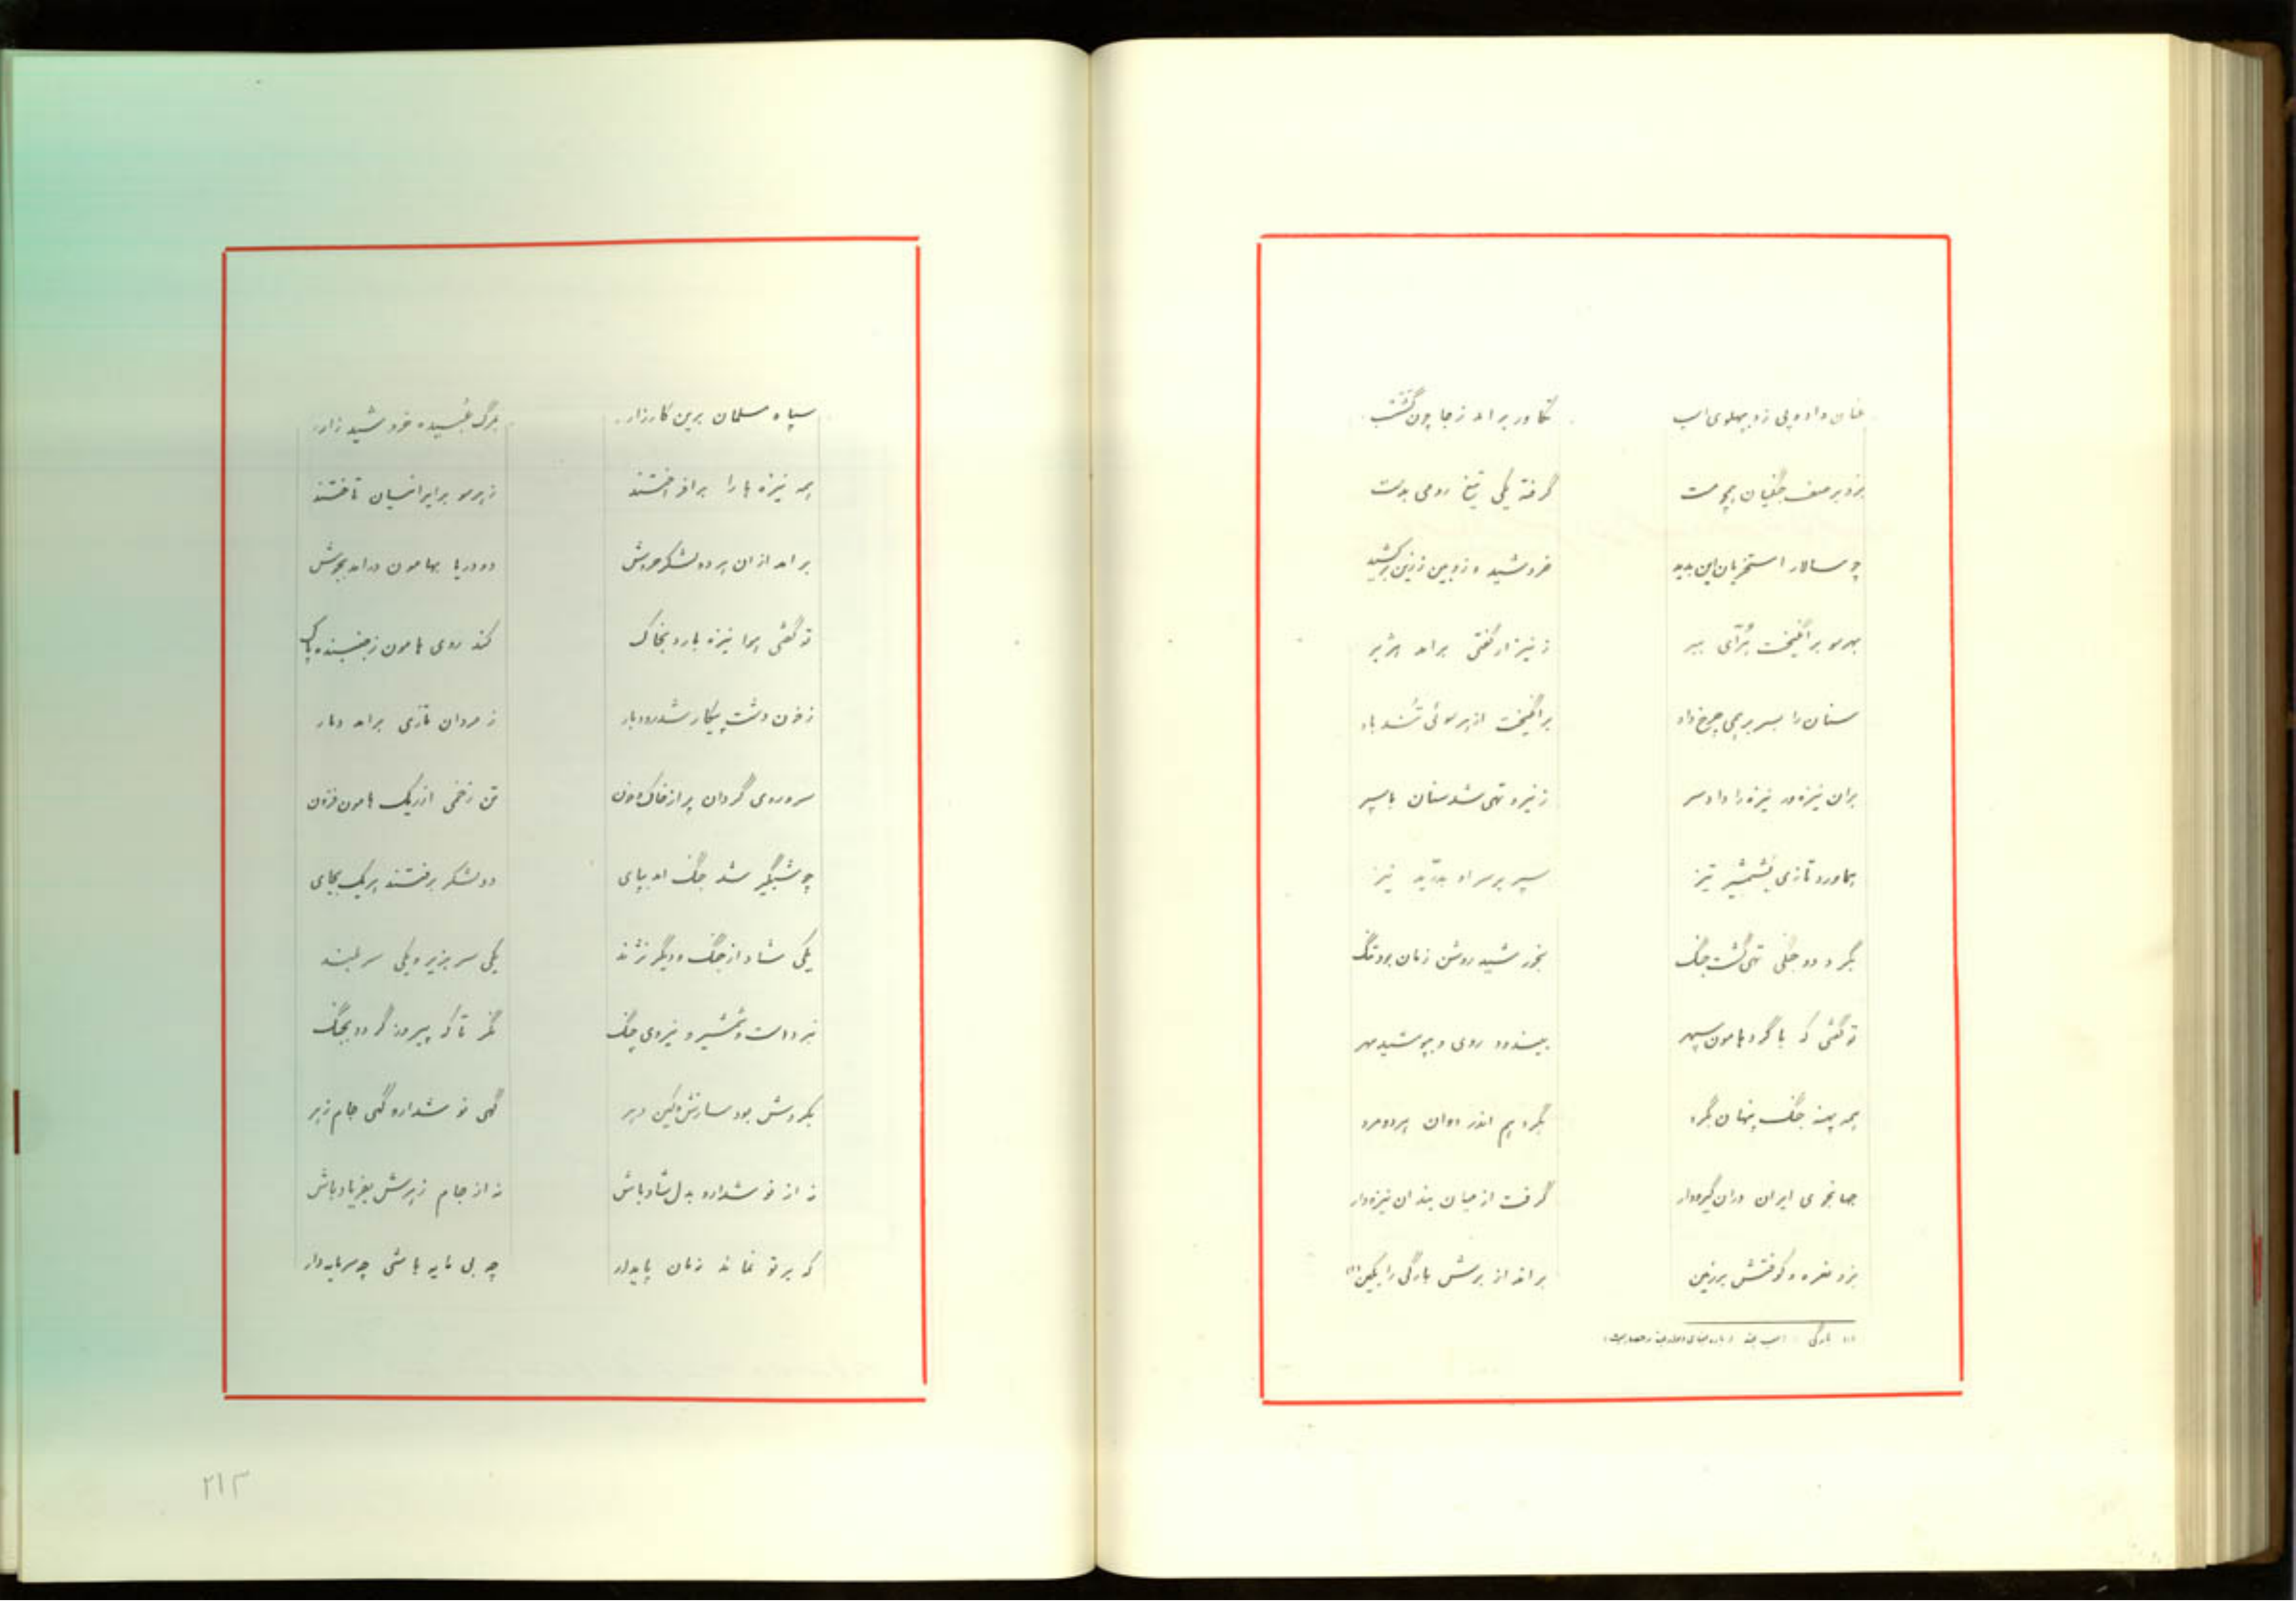 عنان داد و پی زد بپهلوی اسب تکاور برامد ز جا چون گشسب
بزد بر صف جنگیان همچو مست گرفته یکی تیغ رومی بدست
چو سالار استخریان این بدید خروشید و زوبین ز زین برکشید
بهر سو برانگیخت برآی ببر ز نیزار گفتی برامد هژبر
سنان را بسر بر همی چرخ داد برانگیخت از هر سوئی تند باد
بران نیزه ور نیزه را داد سر ز نیرو تهی شد سنان با سپر
هماورد تازی بشمشیر تیز سپر بر سر او بدرید نیز
بگرد دو جنگی تهی گشت جنگ بخورشید روشن زمان بود تنگ
تو گفتی که با گرد هامون سپهر بیندود روی و بپوشید مهر
همه پهنه جنگ پنهان بگرد بگرد هم اندر دوان هر دو مرد
جهانجوی ایران دران گیرودار گرفت از میان بند ان نیزه دار
بزد نعره و کوفتش بر زمین براند از برش بارگی را بکین (۱)
(۱) بارگی : اسب
سپاه مسلمان برین کارزار بمرگ عبیده خروشید زار
همه نیزه ها را برافراختند ز هر سو بر ایرانیان تاختند
برامد از ان هر دو لشکر خروش دو دریا بهامون درامد بجوش
تو گفتی هوا نیزه بارد بخاک کند روی هامون ز جنبنده پاک
ز خون دشت پیکار شد رودبار ز مردان تازی برامد دمار
سر و روی گردان پر از خاک و خون تن زخمی از ریگ هامون فزون
چو شبگیر شد جنگ امد بپای دو لشکر برفتند هر یک بجای
یکی شاد از جنگ و دیگر نژند یکی سر بزیر و یکی سر بلند
نبرد است و شمشیر و نیروی چنگ نگر تا که پیروز گردد بجنگ
بگردش بود سازش و کین دهر گهی نوشدارو گهی جام زهر
نه از نوشدارو بدل شاد باش نه از جام زهرش بفریاد باش
که بر تو نماند زمان پایدار چه بی مایه باشی چه سرمایه دار
۲۱۳